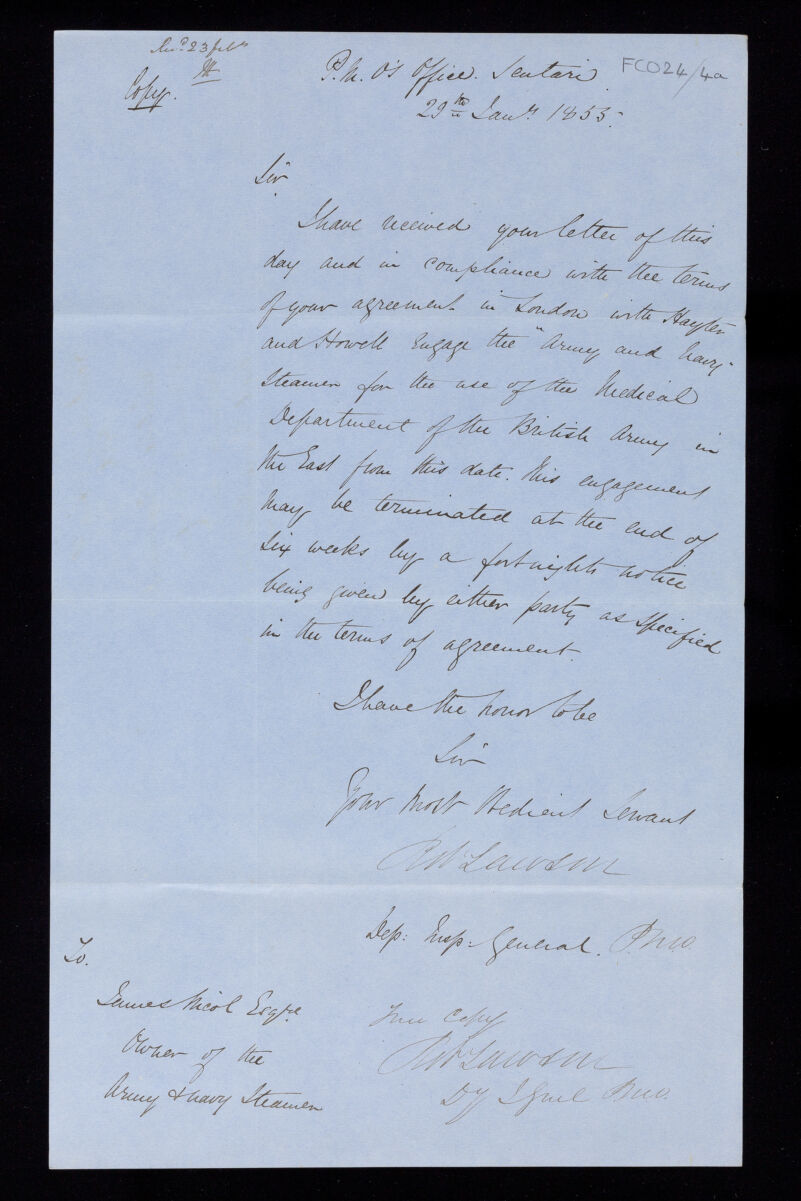 Recd 23 Feby
Copy.
P.M.O's Office. Scutari
FCO24/4a
29th Jany 1855.
Sir
I have received your letter of this
day and in compliance with the terms
of your agreement in London with Hayter
and Howell engage the "Army and Navy"
Steamer for the use of the Medical
Department of the British Army in
the East from this date. This engagement
may be terminated at the end of
six weeks by a fortnights notice
being given by either party as specified
in the terms of agreement.
I have the honor to be
Sir
Your Most Obedient Servant
Rob Lawson
Dep: Insp: General. P.M.O.
To.
James Nicol Esqre
Owner of the
Army & Navy Steamer
True Copy
Rob Lawson
Dy I Genl PMO.